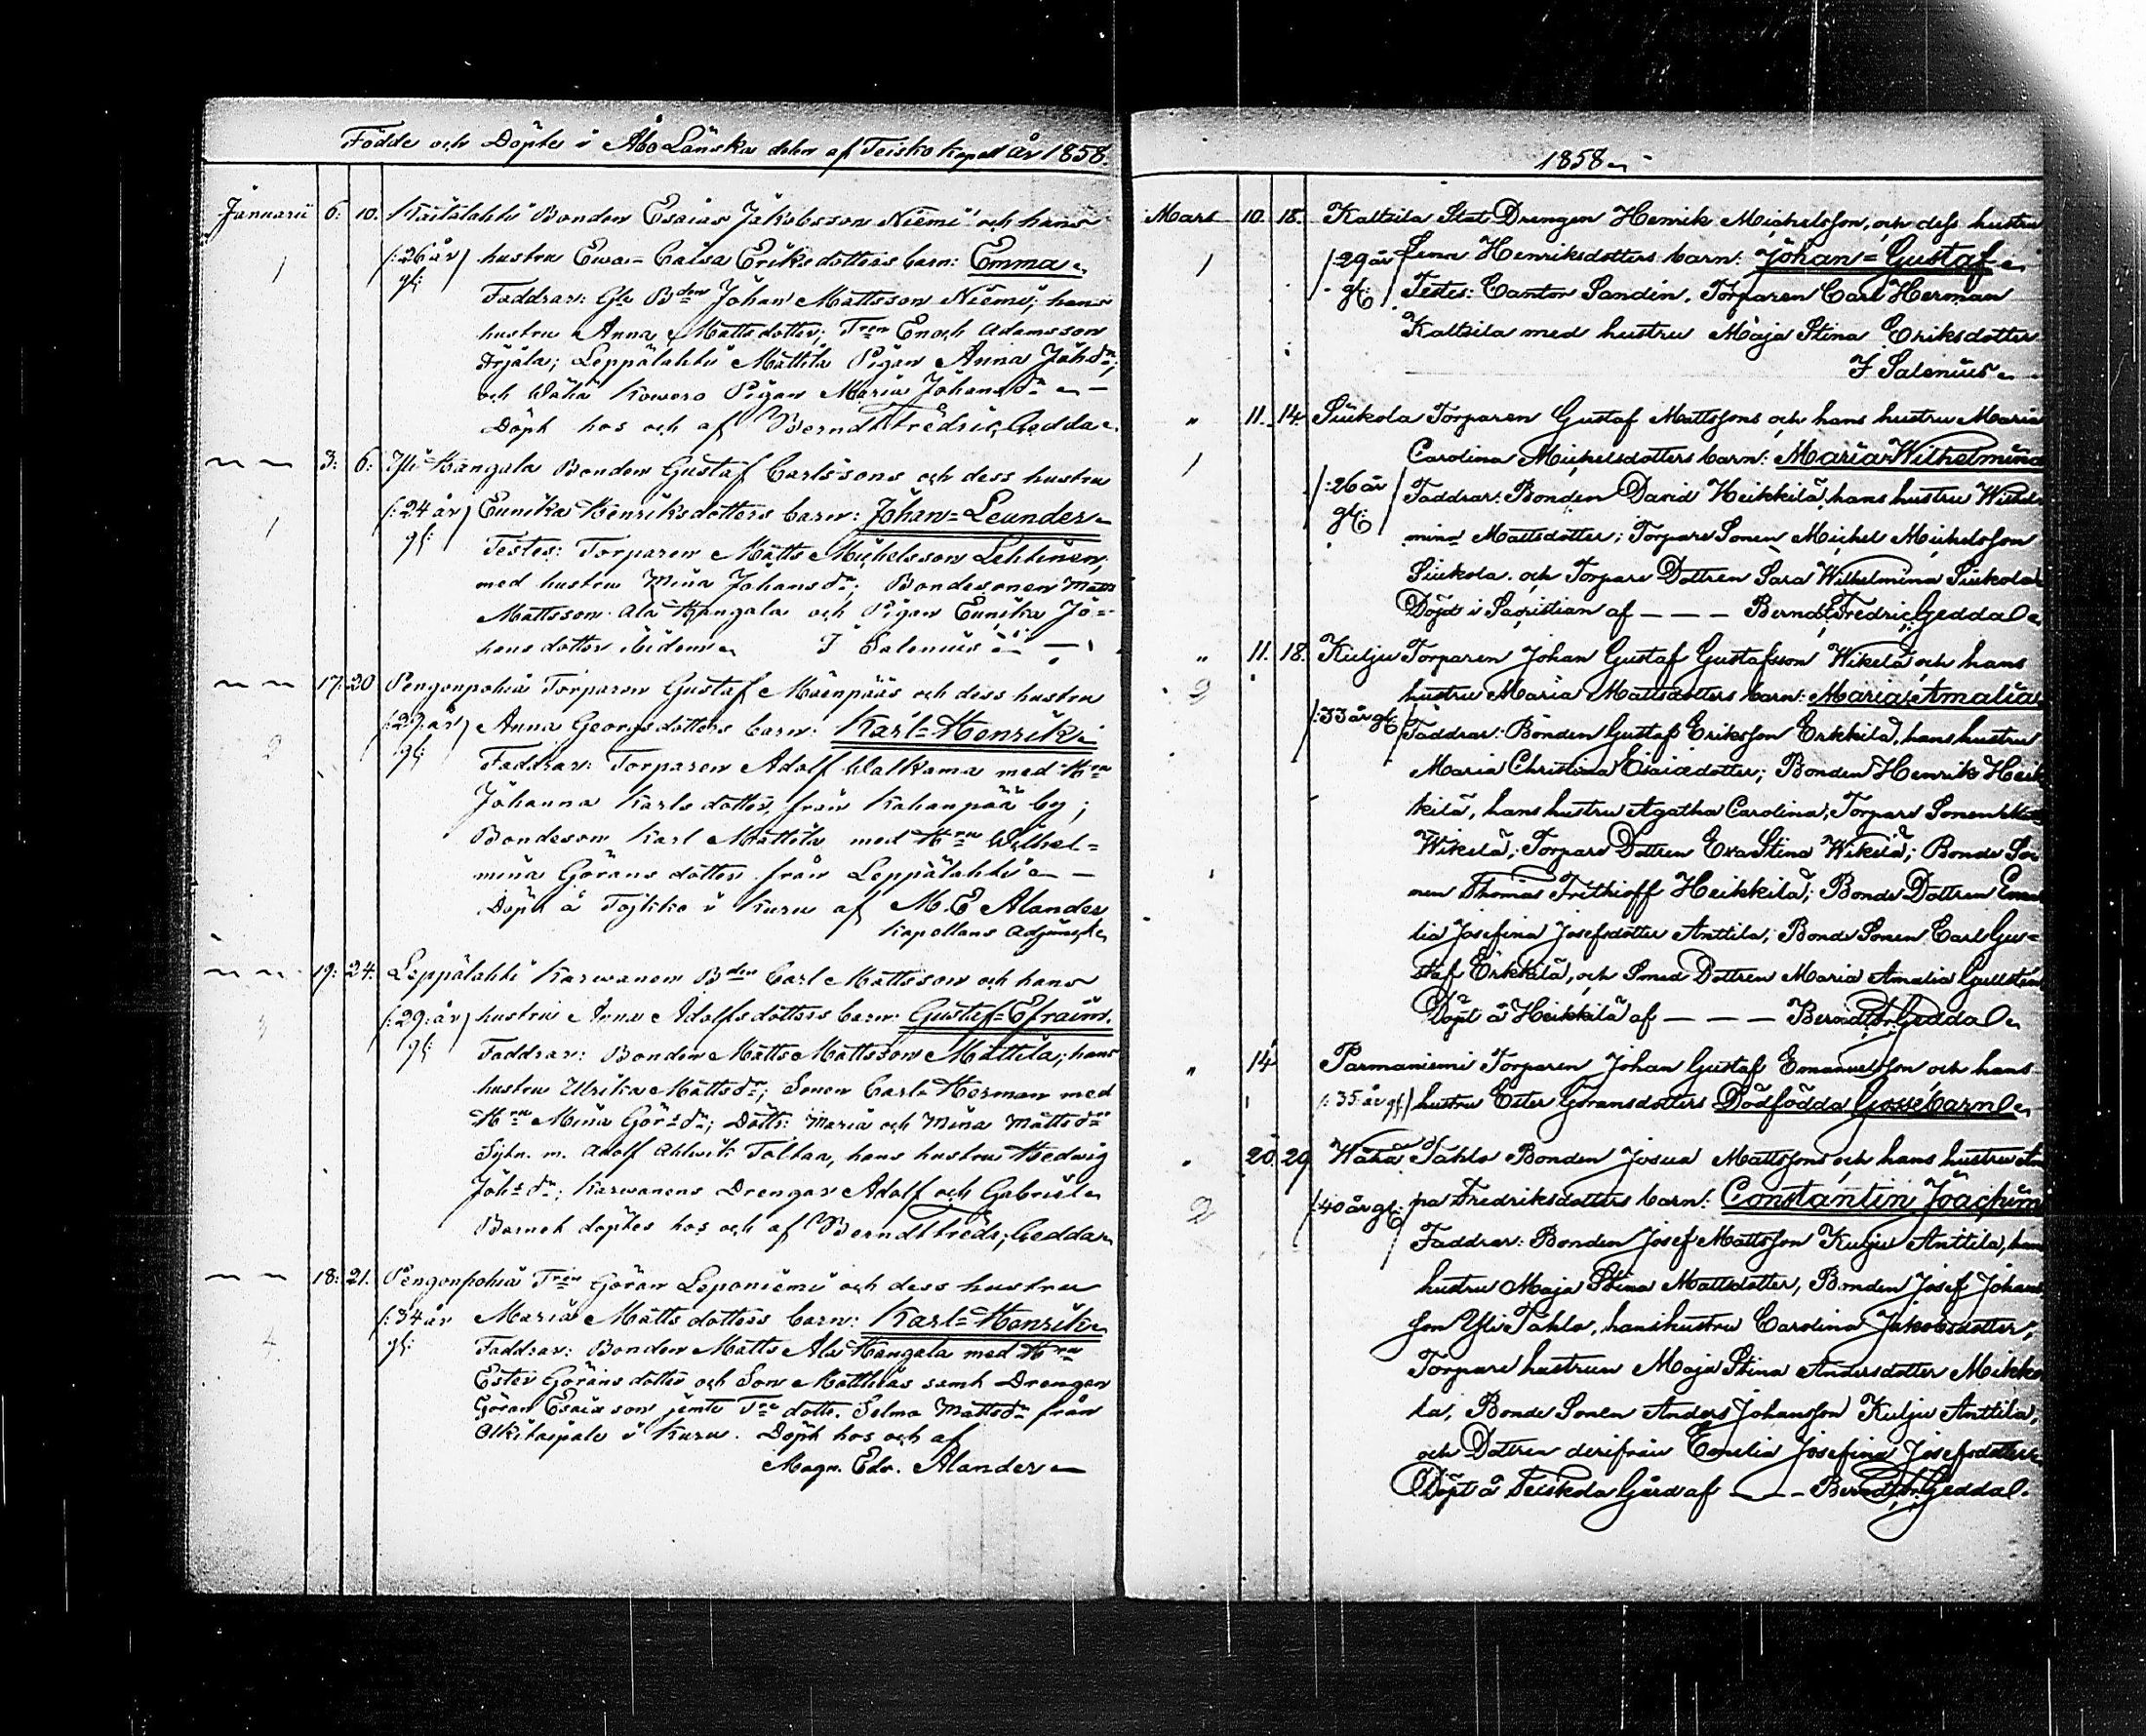 Födde och Döpte i Åbo Länska delen af Teisko Kapell år 1858.
Januarii 6: 10. Kaitalahti Bonden Esaias Jakobsson Niemi och hans
1 /:26 år gl: hustru Ewa=Caisa Eriksdotters barn: Emma
Faddrar: Gle Bden Johan Mattsson Niemi; hans
hustru Anna Mattsdotter; Tren Enoch Adamsson
Leppälahti Mattila Pigan Anna Johdr;
och Wähä Kowero Pigan Maria Johansdr
Döpt hos och af Berndt Fredric Gedda
3: 6: Yli Kangala Bonden Gustaf Carlssons och dess hustru
1 /:24 år gl: Eunika Henriksdotters barn: Johan=Leander
Testes: Torparen Matts Michelsson Lehtinen,
med hustru Mina Johansdr; Bondesonen Matts
Mattsson Ala Kangala och Pigan Eunika Jo=
hansdotter ibidem J Salenius
17: 20 Pengonpohia Torparen Gustaf Mäenpääs och dess hustru
2 /:29: år gl: Anna Georgsdotters barn: Karl=Henrik
Faddrar: Torparen Adolf Walkama med Hru
Johanna Karlsdotter, från Kahanpää by;
Bondeson Karl Mattila med Hru Wilhel=
mina Göransdotter från Leppälahti
Döpt å i Kuru af M. E Alander
Kapellans Adjunct
19: 24. Leppälahti Karwanen Bden Carl Mattsson och hans
3 /:29: år gl: hustru Anna Adolfsdotters barn: Gustaf=Efraim.
Faddrar: Bonden Matts Mattsson Mattila; hans
hustru Ulrika Mattsdr; Sonen Carl Herman med
Hru Mina Görsdr; Dottr: Maria och Mina Mattsdr
Sytn. m. Adolf Ahlwik Toltaa, hans hustru Hedwig
Johsdr; Karwanens Drengar Adolf och Gabriel
Barnet döptes hos och af Berndt Fredr. Gedda
18: 21. Pengonpohia Tren Göran Leponiemi och dess hustru
4 /:34 år gl: Maria Mattsdotters barn: Karl=Henrik
Faddrar: Bonden Matts Ala Kangala med Hru
Ester Göransdotter och Son Matthias samt Drengen
Göran Esaiasson jemte Tre dottr. Selma Mattsdr från
Olkitaipale i Kuru. Döpt hos och af
Magn. Edv. Alander
1858
Mars 10. 18. Kaltsila Stat Drengen Henrik Michelsson, och dess hustru
1 /:29 år gl: Lena Henriksdotters barn: Johan=Gustaf
Testes: Cantor Sandin. Torparen Carl Herman
Kaltsila med hustru Maja Stina Eriksdotter
J Salenius
" 11. 14. Siukola Torparen Gustaf Mattssons och hans hustru Maria
1 Carolina Michelsdotters barn: Maria Wilhelmina
/:26 år gl: Faddrar: Bonden David Heikkilä, hans hustru Wilhel
mina Mattsdotter; Torpare Sonen Michel Michelsson
Siukola. och Torpare Dottren Sara Wilhelmina Siukola
Döpt i Sacristian af — — — Berndt Fredric Gedda
" 11. 18. Kulju Torparen Johan Gustaf Gustafsson Wikelä och hans
2 hustru Maria Mattsdotters barn: Maria Amalia
/:33 år gl: Faddrar: Bonden Gustaf Eriksson Erkkilä, hans hustru
Maria Christina Esaiædotter; Bonden Henrik Heik
kilä, hans hustru Agatha Carolina; Torpare Sonen
Wikelä; Torpare Dottren Eva Stina Wikelä; Bonde So
nen Thomas Frithioff Heikkilä; Bonde Dottren Eme
lia Josefina Josefsdotter Anttila; Bonde Sonen Carl Gus=
staf Erkkilä, och Smed Dottren Maria Amalia Gullstén
Döpt å Heikkilä af — — — Berndt Fr. Gedda
" 14 Parmaniemi Torparen Johan Gustaf Emanuelsson och hans
/:35 år gl: hustru Ester Göransdotters Dödfödda Gossebarn
" 25. 29 Wähä Pahlo Bonden Josua Mattssons och hans hustru An
2 /:40 år gl: na Fredriksdotters barn: Constantin Joachim
Faddrar: Bonden Josef Mattsson Kulju Anttila, hans
hustru Maja Stina Mattsdotter, Bonden Josef Johans
son Yli Pahlo, hans hustru Carolina Jakobsdotter,
Torpare hustrun Maja Stina Andersdotter Mikko
la, Bonde Sonen Anders Johansson Kulju Anttila,
och Dottren derifrån Emelia Josefina Josefsdotter
Döpt å Teiskola Gård af — — Berndt Fr. Gedda